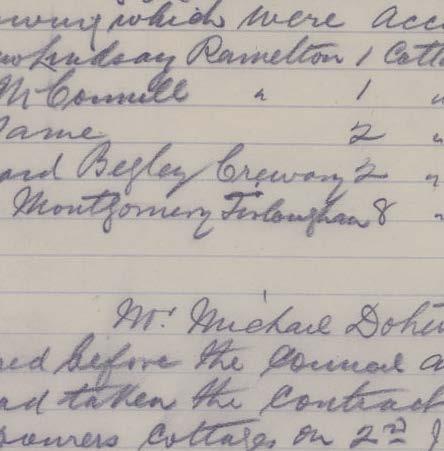 owing which were acc
w Lindsay Ramelton 1 Cotta
McConnell " 1 "
Same 2 "
ard Begley Creevary 2 "
Montgomery 8 "
Mr. Michael Dohe
red before the Council a
ad taken the contract
bourers cottages on 2nd J